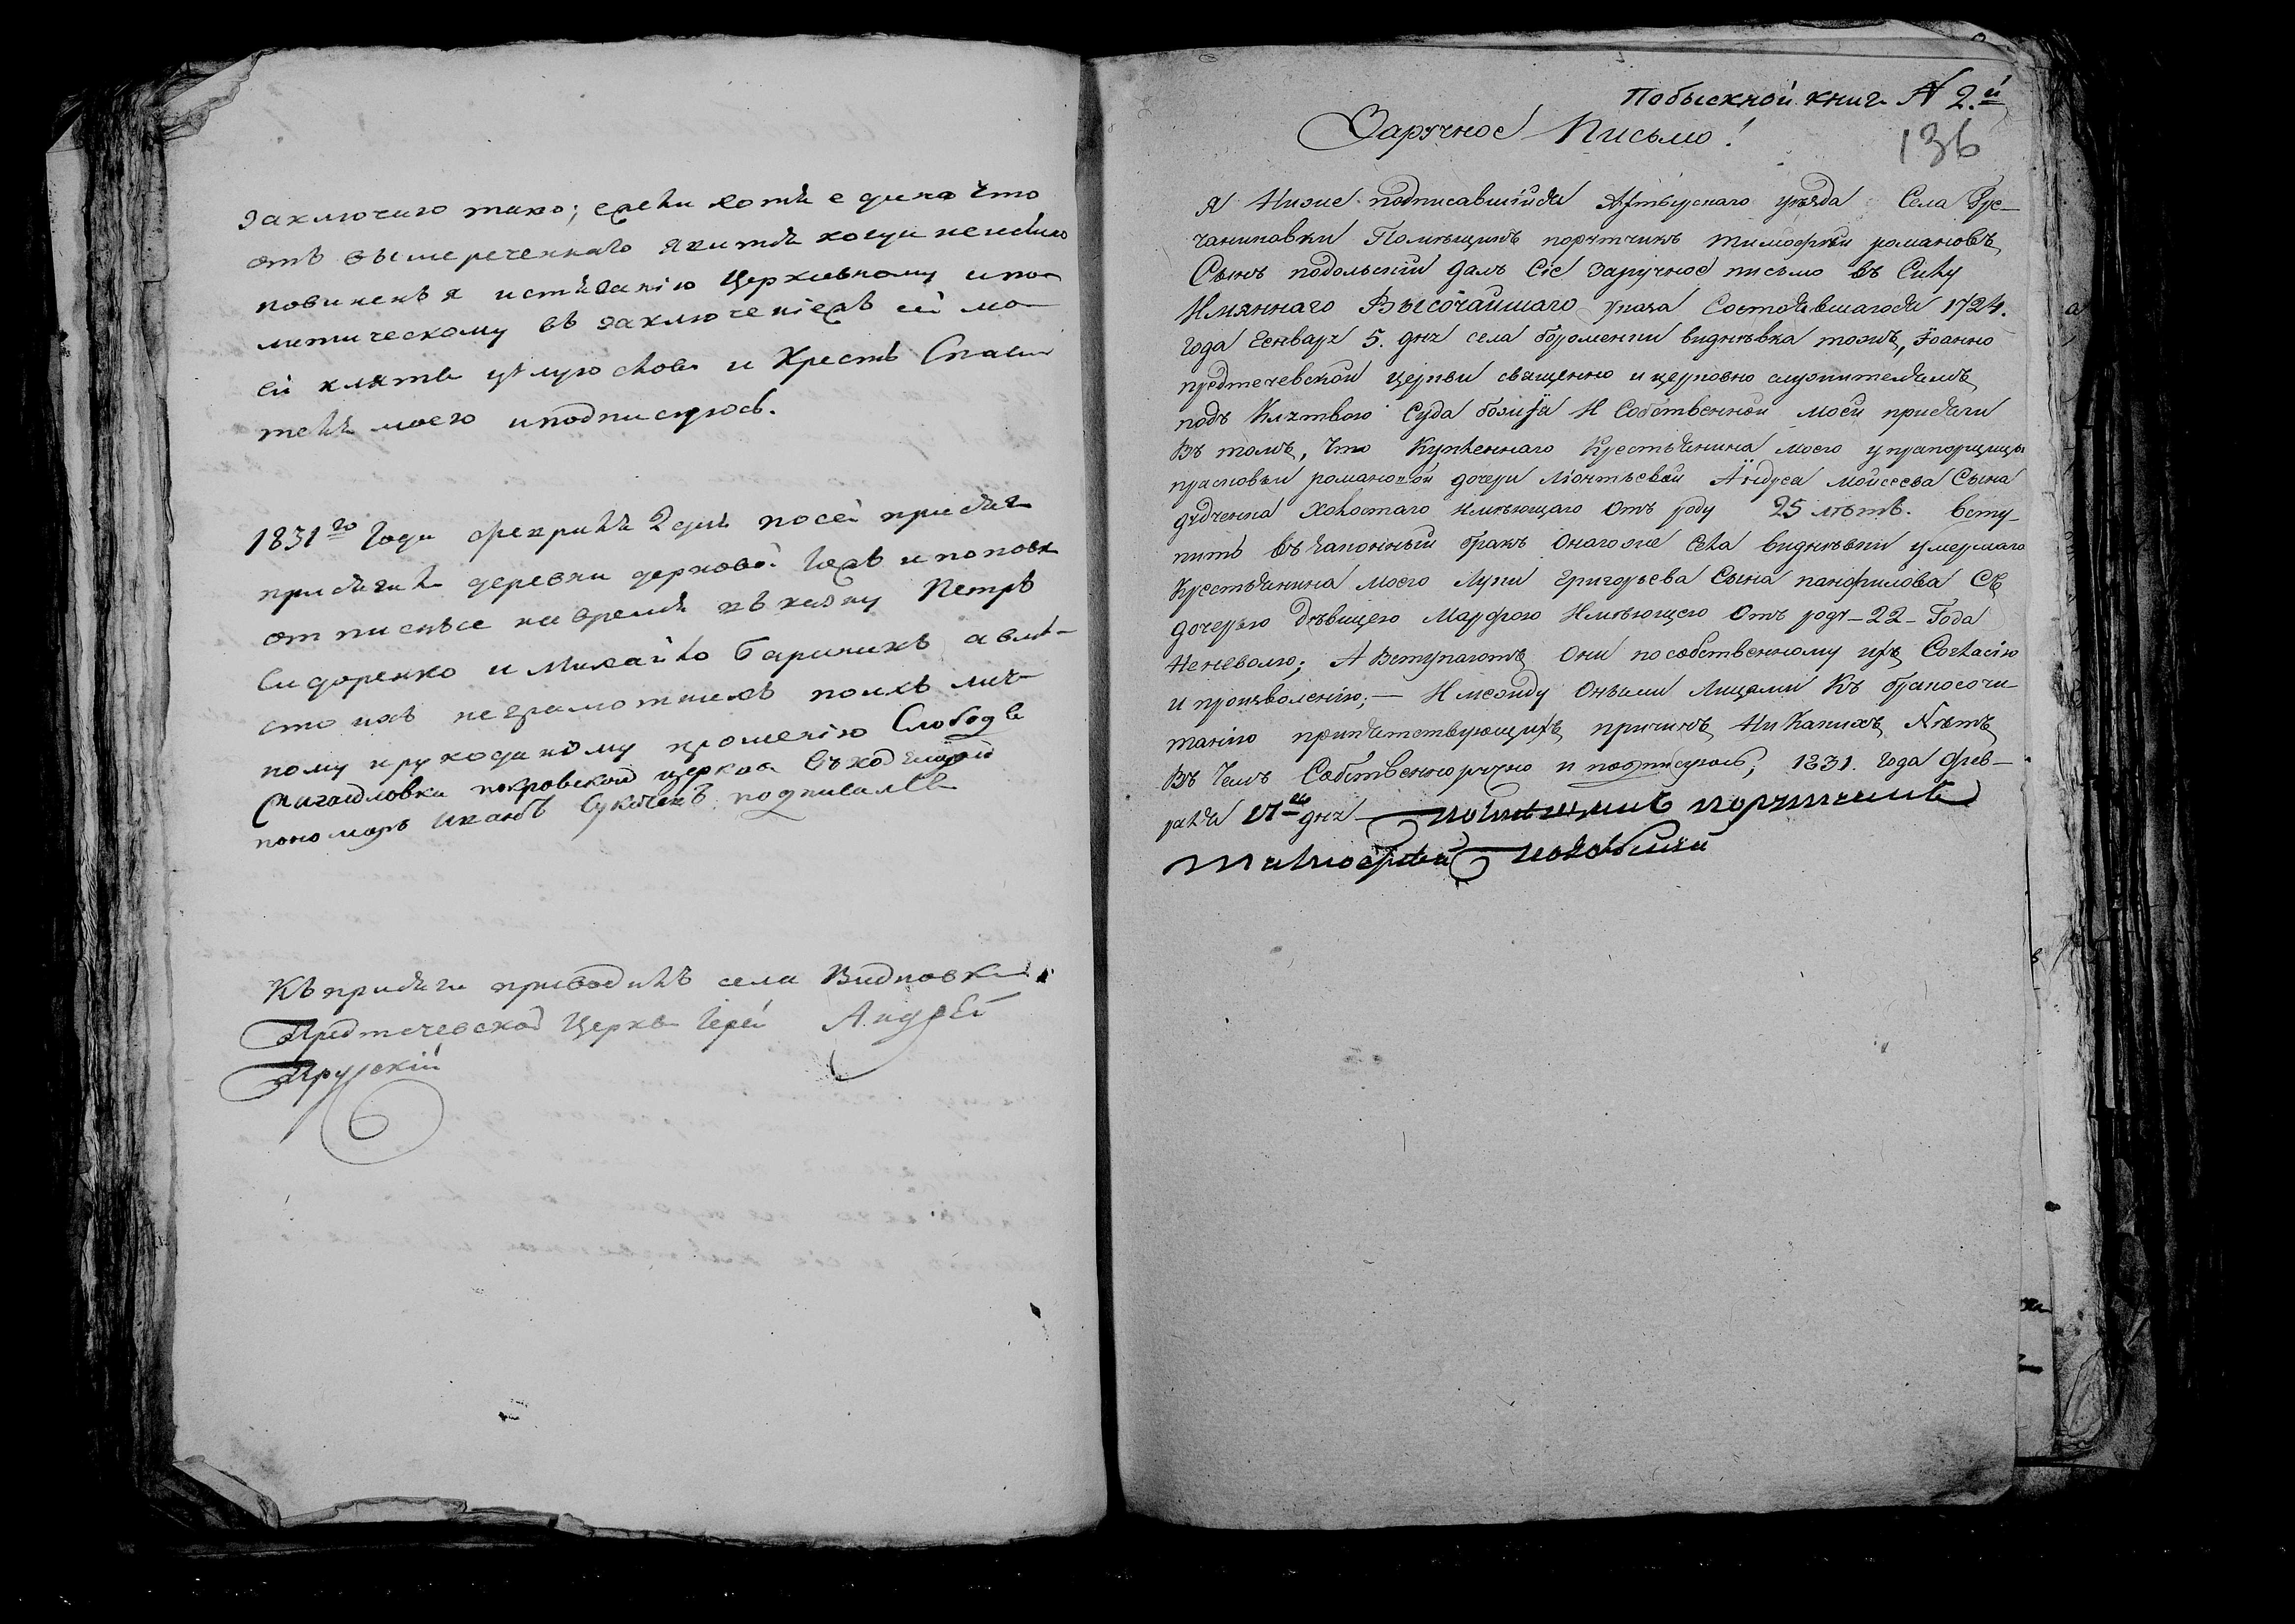 заключаю тако; ежели хотя едино что
отъ вышереченнаго явится когда неисково
повиненъ я истязанію Церковному и по-
литическому въ заключеніежъ сей мо-
ей клятвы цѣлую слова и Крестъ Спаси
теля моего и подписуюсь.
1831го Года февраля 2 дня по сей присяги
присягали деревни
отписн на время въ казну Петръ
Сидоренко и Михайло Баричихъ а вмѣ-
сто ихъ неграмотныхъ по ихъ лич-
ному и рукоданному прошенію Слободы
Михайловки покровской церкви
пономарь Иванъ подписался
Къ присяги приводилъ села Видновки
Предтечевской Церкви Іерей Андрей
Прускій
По обыскной книг N 2й
136
Заручное Письмо!
Я Ниже подписавшійся Ахтырскаго уѣзда Села Гре-
чаниковки Помѣщикъ порутчикъ тимофѣй романовъ
Сынъ подольскій далъ Сіе заручное письмо въ Силу
Имяннаго Высочайшаго указа Состоявшагося 1724.
года Генваря 5. дня села боромении виднѣвка тожъ, Іоанно
предтечевской церкви священно и церковно служителямъ
подъ Клятвою Суда божія И Собственной моей присяги
Въ томъ, Что Купленнаго Крестьянина моего у прапорщицы
прасковьи романовой дочери Андрея Мойсеева Сына
дядченка Холостаго имѣющаго Отъ роду 25 лѣтъ. всту-
пить въ законный бракъ Онагоже Села виднѣвки умершаго
Крестьянина моего Луки Григорьева Сына панфилова Съ
дочерью дѣвицею Марфою Имѣющею Отъ роду - 22 - Года
Неневолю; А Вступаютъ Они по собственному ихъ Согласію
и произволенію; — И между Онѣми Лицами Къ бракосочи-
танію препятствующихъ причинъ Ни Какихъ Нѣтъ
Въ Чемъ Собственноручно и подписуюсь, 1831. Года фев-
раля 17го дня — помѣщикъ порутчикъ
тимофей подольскій